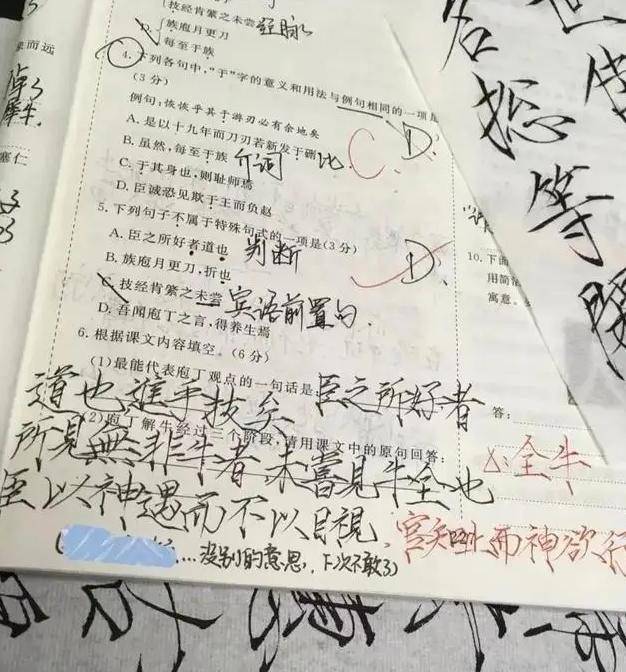 技经肯綮之未尝 经脉
D. 族庖月更刀
每至于族
4. 下列各句中,“于”字的意义和用法与例句相同的一项是
(3分)
例句:恢恢乎其于游刃必有余地矣
A. 是以十九年而刀刃若新发于硎
B. 虽然,每至于族 介词 比 C D.
C. 于其身也,则耻师焉
D. 臣诚恐见欺于王而负赵
5. 下列句子不属于特殊句式的一项是(3分)
A. 臣之所好者道也 判断
B. 族庖月更刀,折也 D.
C. 技经肯綮之未尝 宾语前置句.
D. 吾闻庖丁之言,得养生焉
6. 根据课文内容填空。(6分)
(1)最能代表庖丁观点的一句话是: 臣之所好者
道也 进乎技矣
(2)庖丁解牛经过三个阶段,请用课文中的原句回答:
所见無非牛者 未嘗見牛全也
臣以神遇而不以目視
...没别的意思,下次不敢了)
全牛
官知止而神欲行
而远
塞仁
10. 下面
用简
寓意。
答:
等